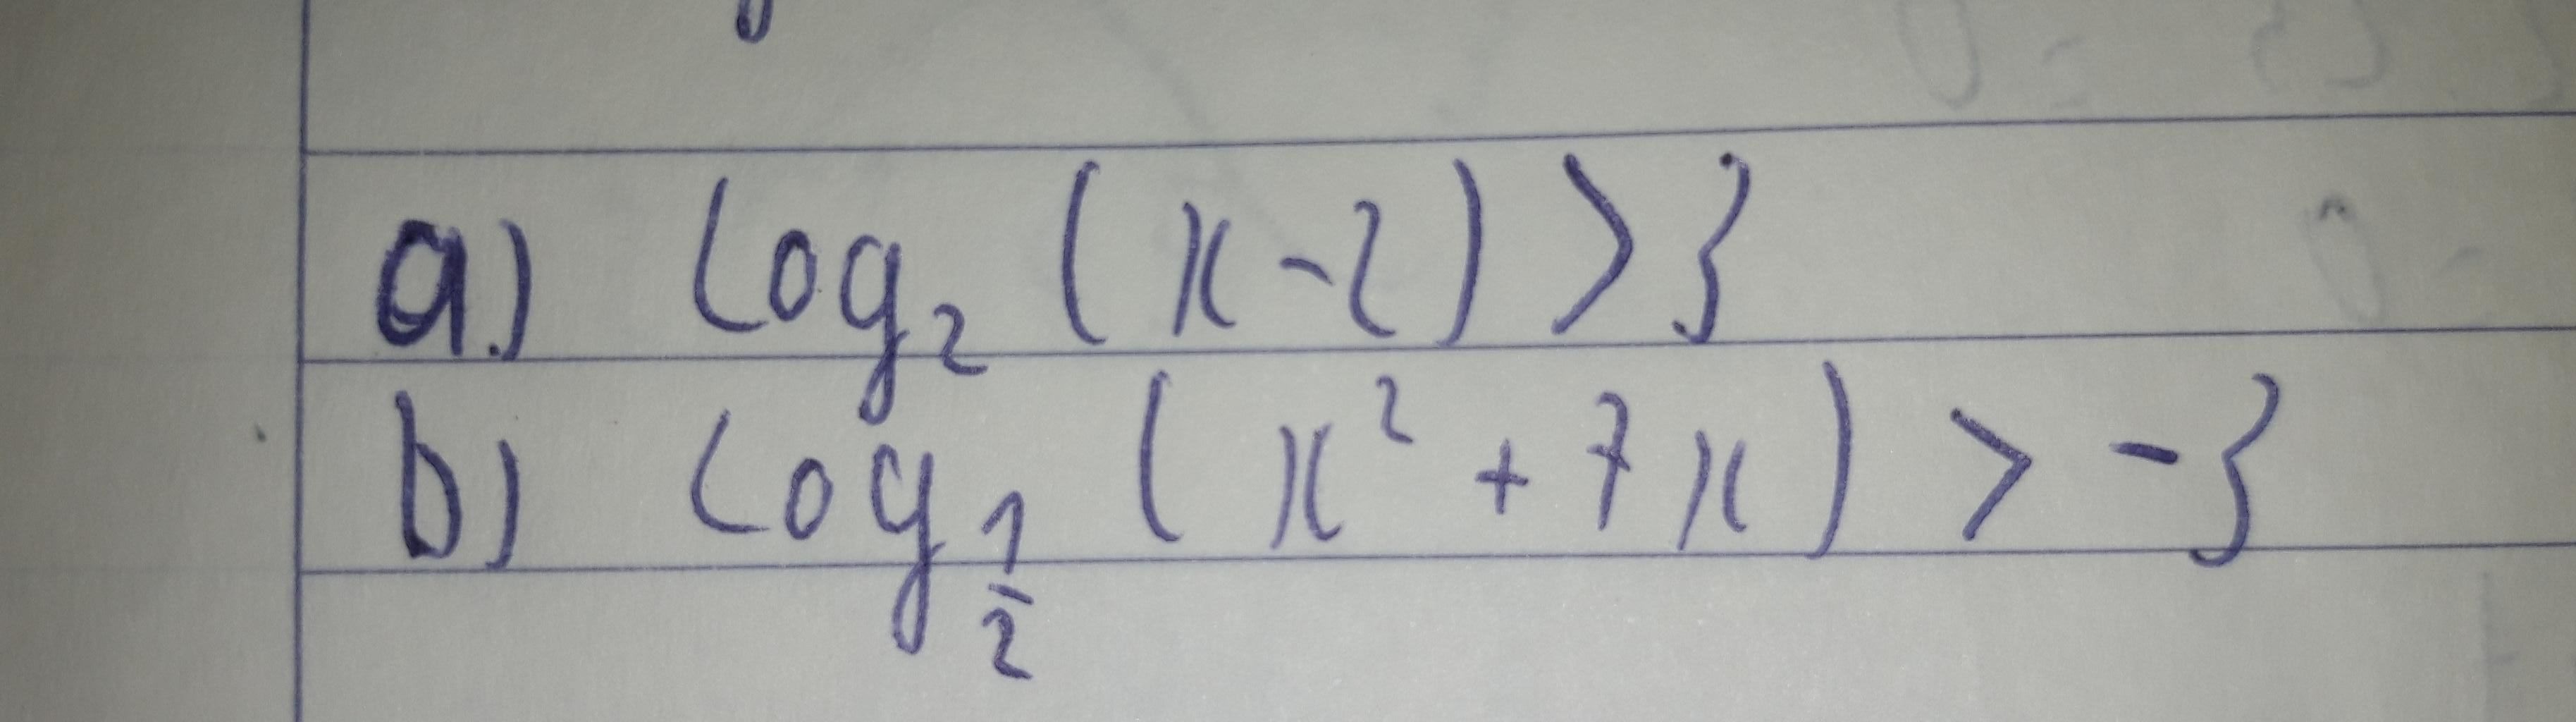 a.) log₂ (x-2) > 3
b) log_{1/2} (x² + 7x) > -3